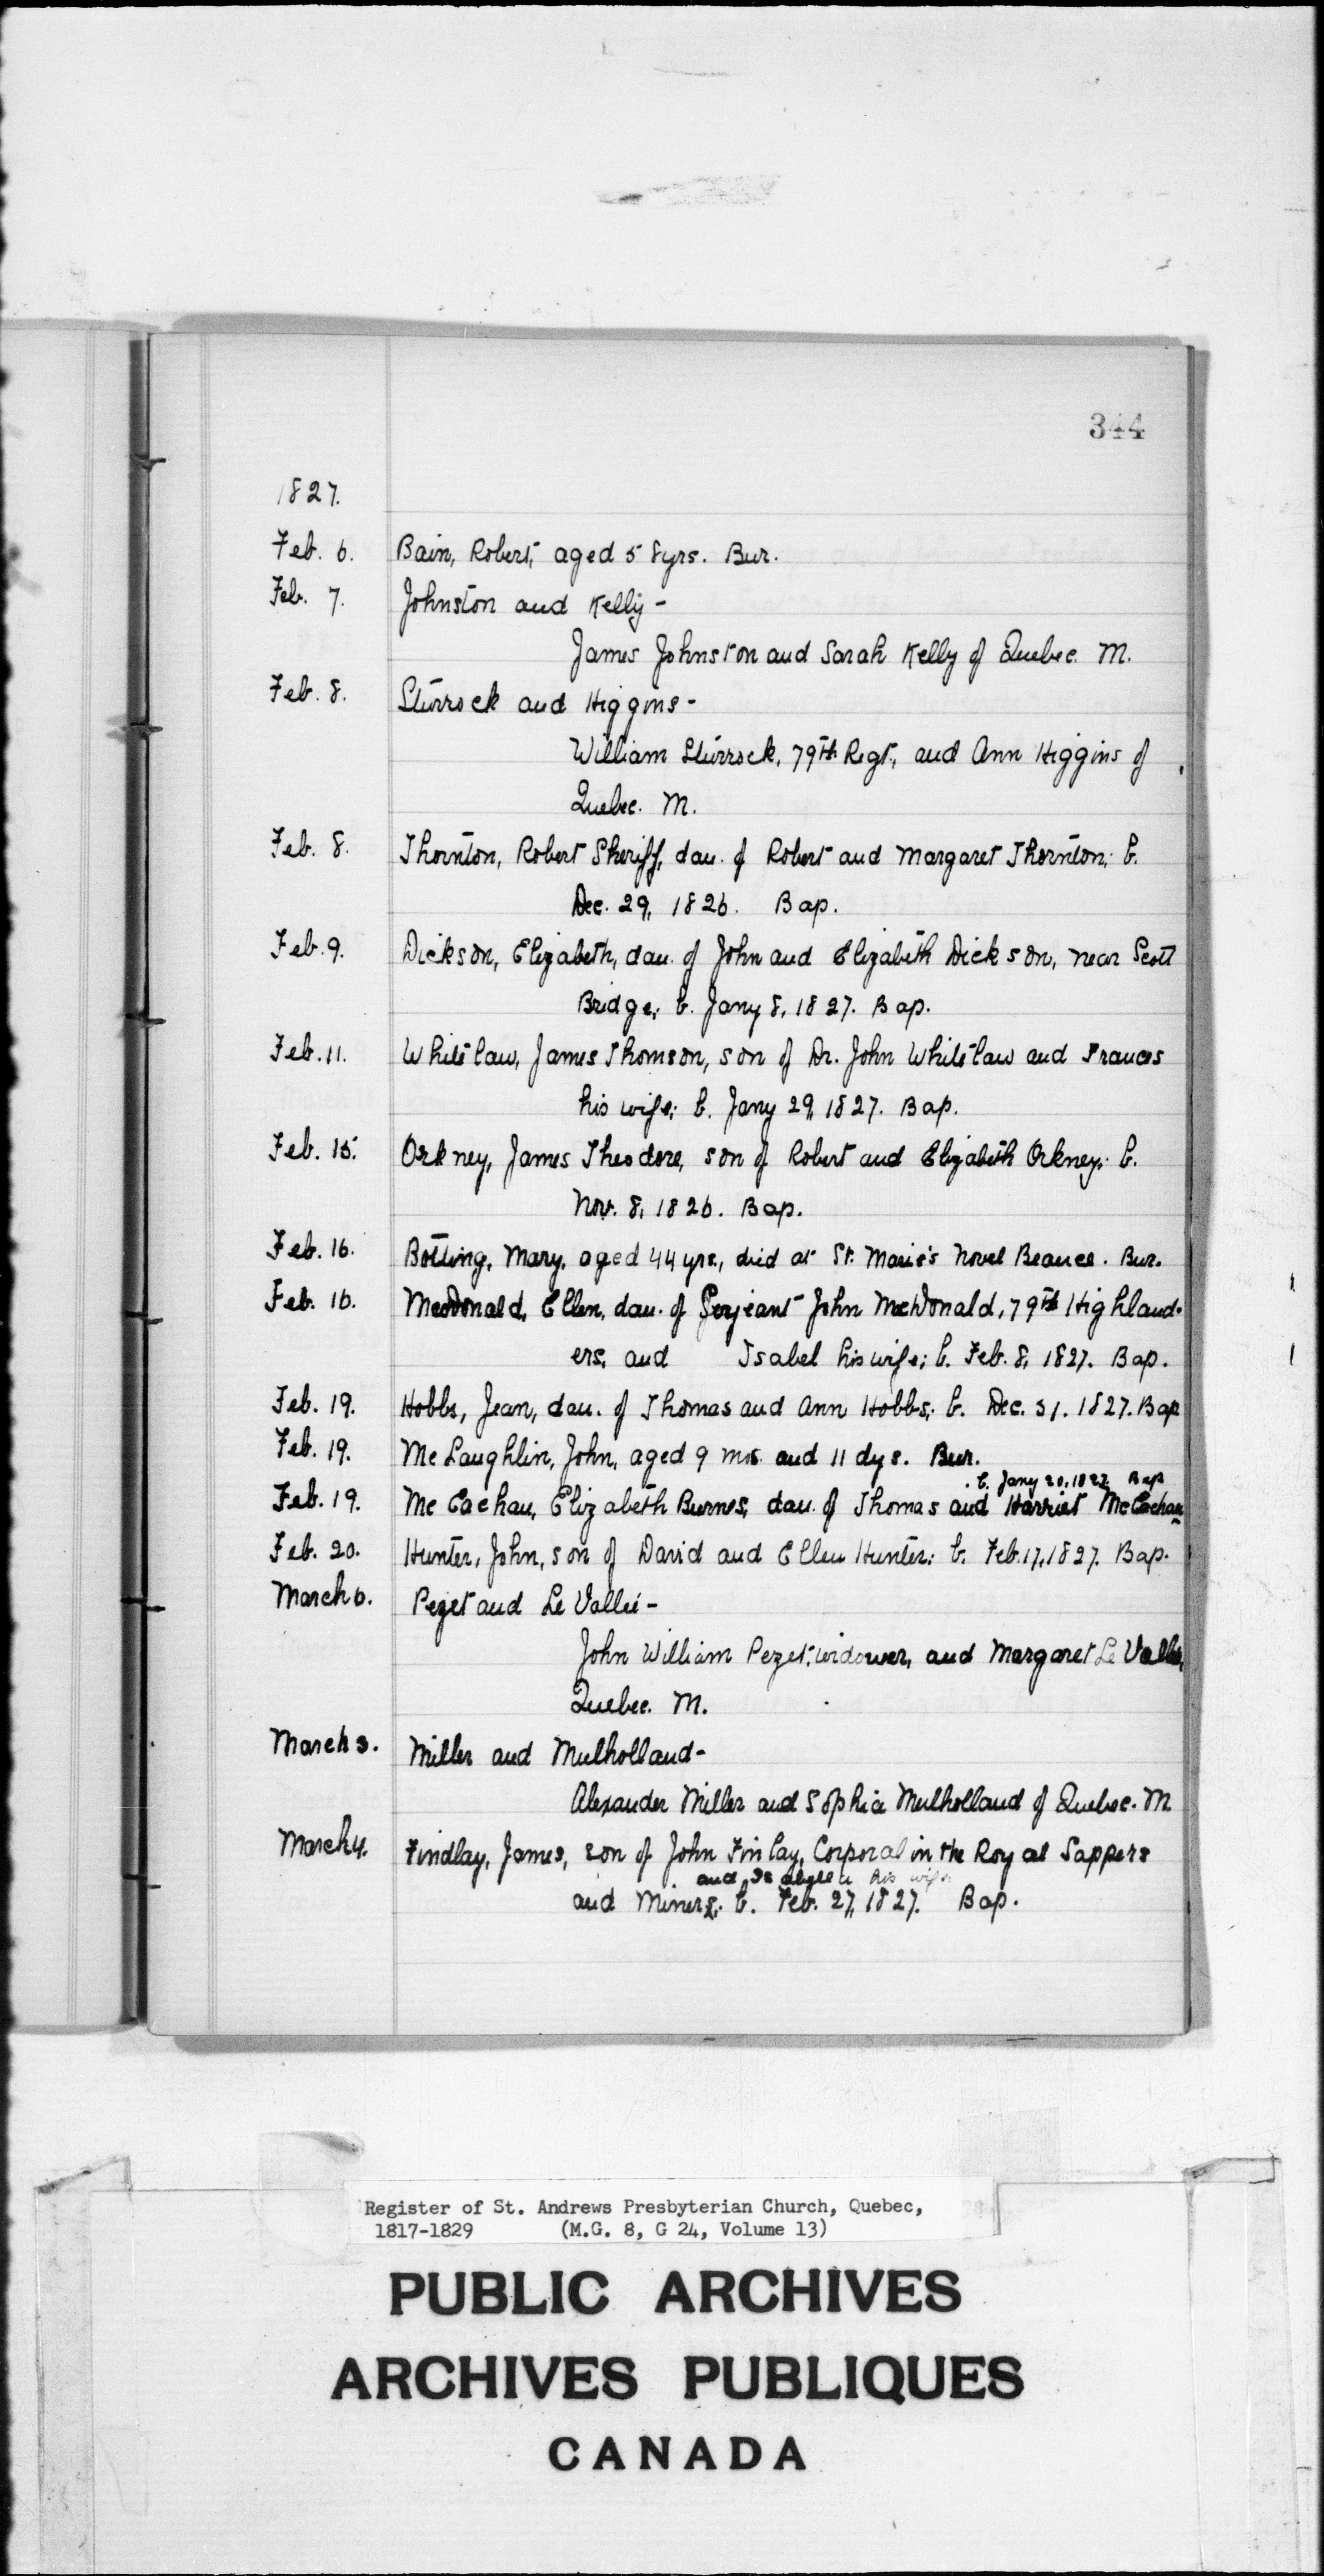 344
1827.
Feb. 6. Bain, Robert, aged 58yrs. Bur.
Feb. 7. Johnston and Kelly -
James Johnston and Sarah Kelly of Quebec. M.
Feb. 8. Sturrock and Higgins -
William Sturrock, 79th Regt., and Ann Higgins of
Quebec. M.
Feb. 8. Thornton, Robert Sheriff, dau. of Robert and Margaret Thornton; b.
Dec. 29, 1826. Bap.
Feb. 9. Dickson, Elizabeth, dau. of John and Elizabeth Dickson, near Scott
Bridge; b. Jany 8, 1827. Bap.
Feb. 11. Whitelaw, James Thomson, son of Dr. John Whitelaw and Frances
his wife; b. Jany 29, 1827. Bap.
Feb. 15. Orkney, James Theodore, son of Robert and Elizabeth Orkney; b.
Nov. 8, 1826. Bap.
Feb. 16. Botting, Mary, aged 44 yrs., died at St. Marie's Novel Beauce. Bur.
Feb. 16. MacDonald, Ellen, dau. of Serjeant John MacDonald, 79th Highland-
ers, and Isabel his wife; b. Feb. 8, 1827. Bap.
Feb. 19. Hobbs, Jean, dau. of Thomas and Ann Hobbs; b. Dec. 31. 1827. Bap
Feb. 19. McLaughlin, John, aged 9 mos. and 11 dys. Bur.
b. Jany 20, 1827 Bap
Feb. 19. McEachan, Elizabeth Burnes, dau. of Thomas and Harriet McEachan
Feb. 20. Hunter, John, son of David and Ellen Hunter; b. Feb. 17, 1827. Bap.
March 6. Pezet and Le Vallée -
John William Pezet, widower, and Margaret Le Vallée,
Quebec. M.
March 3. Miller and Mulholland -
Alexander Miller and Sophia Mulholland of Quebec. M
March 4. Findlay, James, son of John Finlay, Corporal in the Royal Sappers
and his wife
and Miners; b. Feb. 27, 1827. Bap.
Register of St. Andrews Presbyterian Church, Quebec,
1817-1829 (M.G. 8, G 24, Volume 13)
PUBLIC ARCHIVES
ARCHIVES PUBLIQUES
CANADA